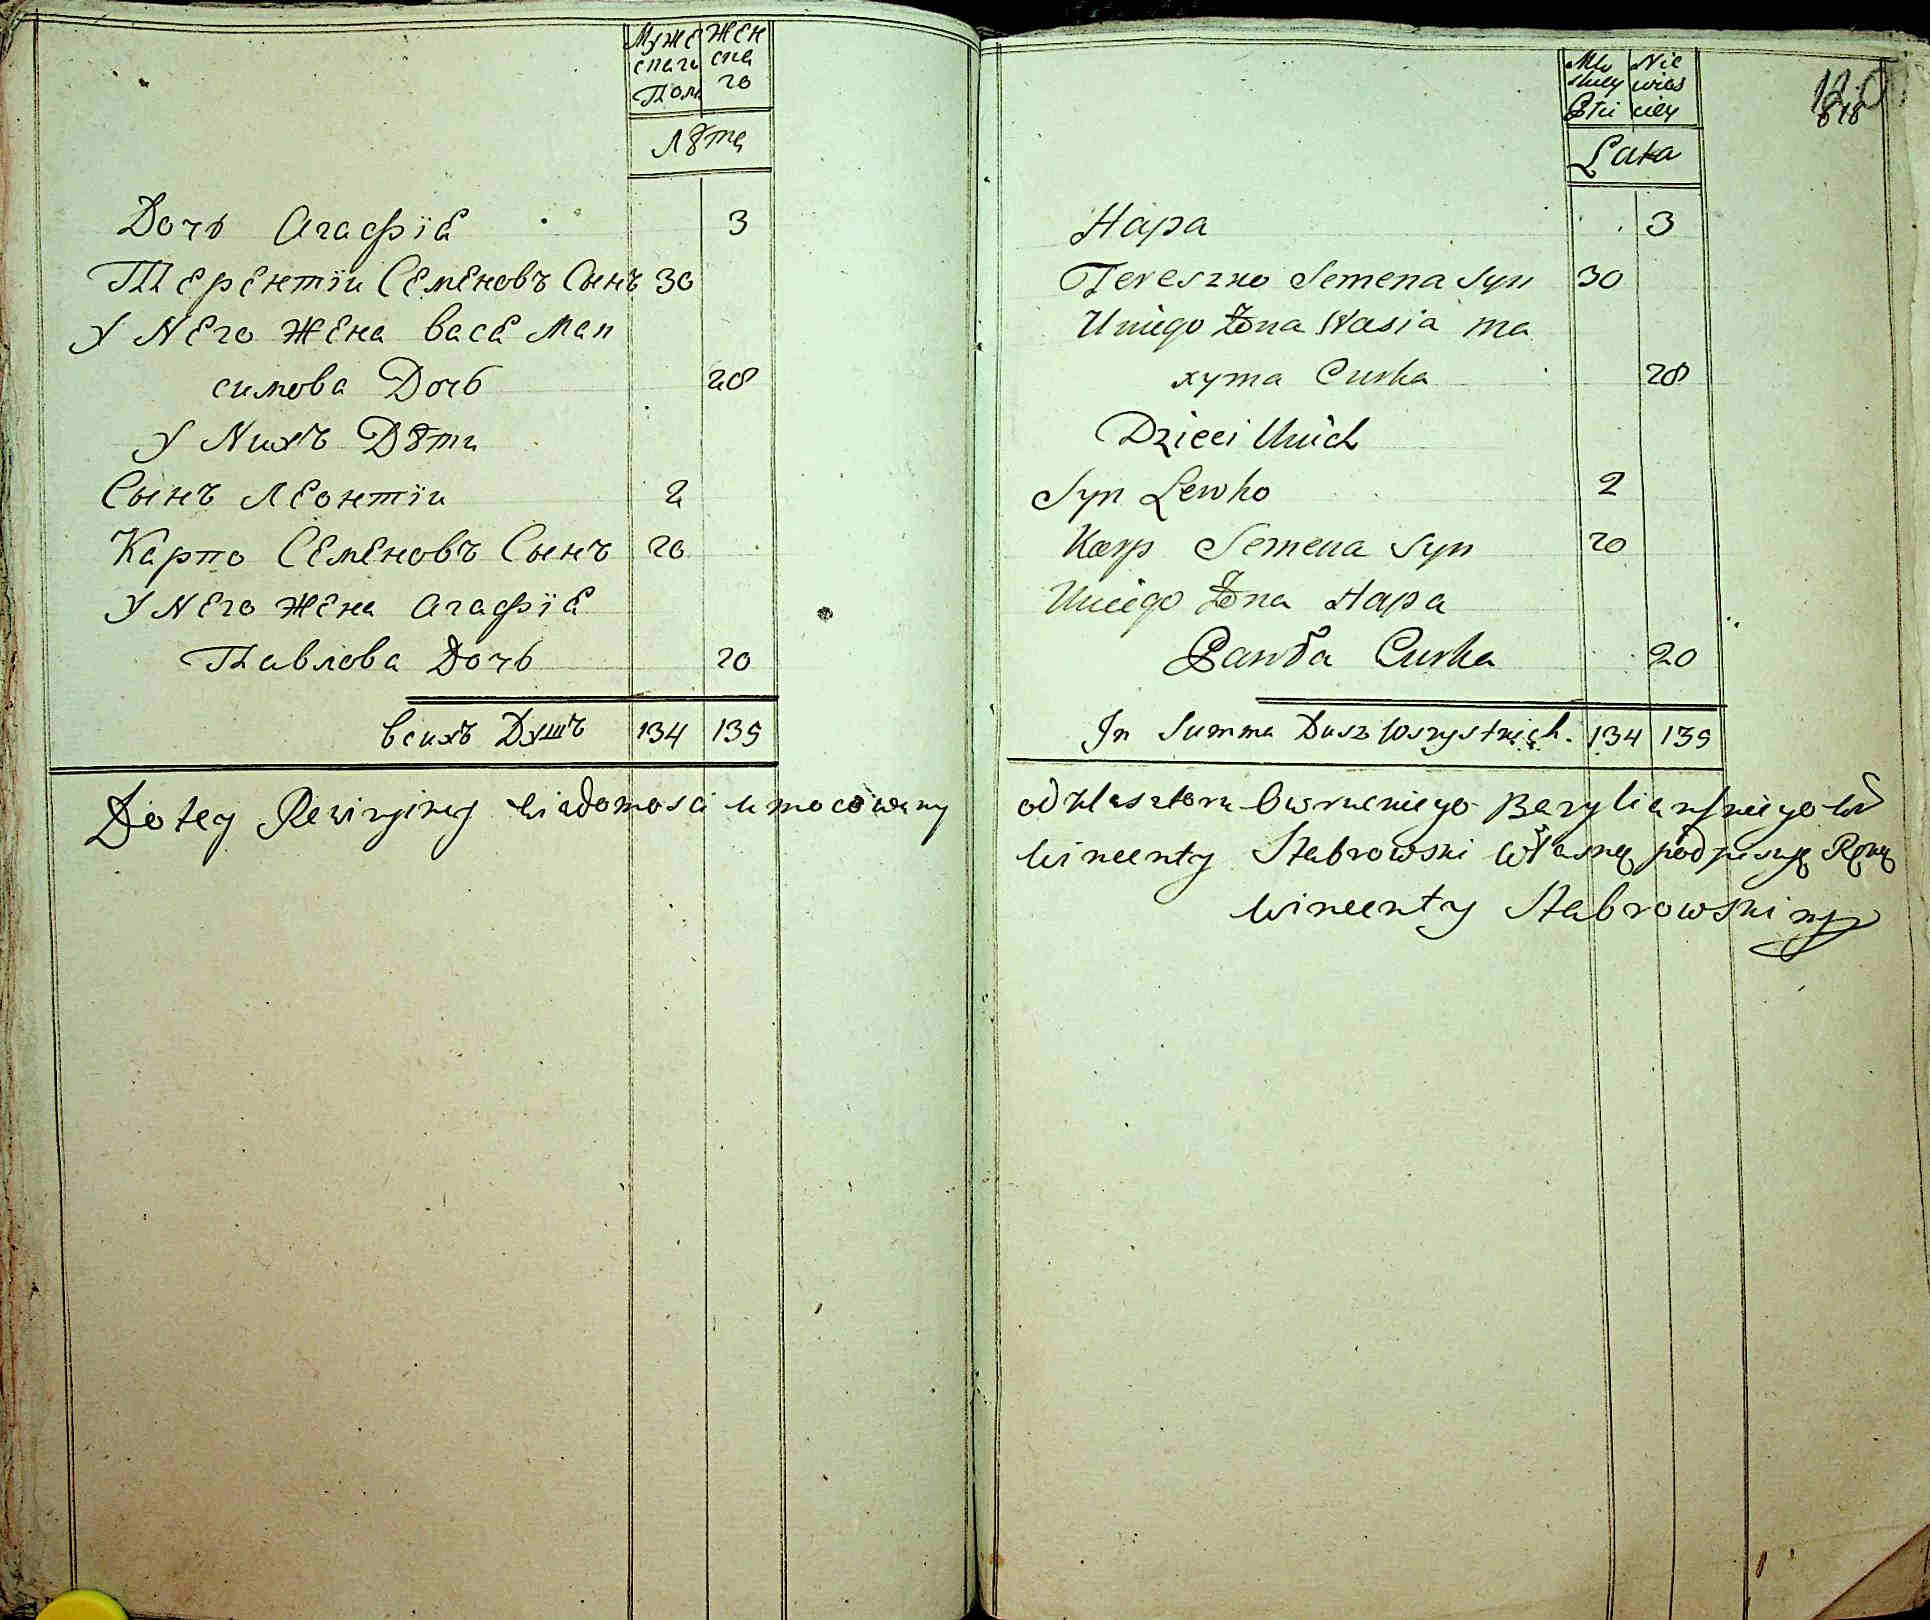 Муже Жен
скаго ска
Пола го
Лѣта
Дочь Агафїа 3
Терентїи Семеновъ Сынъ 30
У Него Жена Васа Мак
симова Дочь 28
У Нихъ Дѣти
Сынъ Леонтїи 2
Карпо Семеновъ Сынъ 20
У Него Жена Агафїа
Павлова Дочь 20
Всихъ Душъ 134 135
Do tey Rewizyiney wiadomosci umocowany
Mę Nie
skiey wies
Płci ciey
Lata
Hapa 3
Tereszko Semena Syn 30
Uniego Żona Wasia Ma
xyma Curka 28
Dzieci Unich
Syn Lewko 2
Karp Semena Syn 20
Uniego Żona Hapa
Pawła Curka 20
In Summa Dusz Wszystkich. 134 135
od Klasztoru Owruckiego Bazylianskiego
Wincenty Stabrowski Własną podpisuję Ręką
Wincenty Stabrowski mp